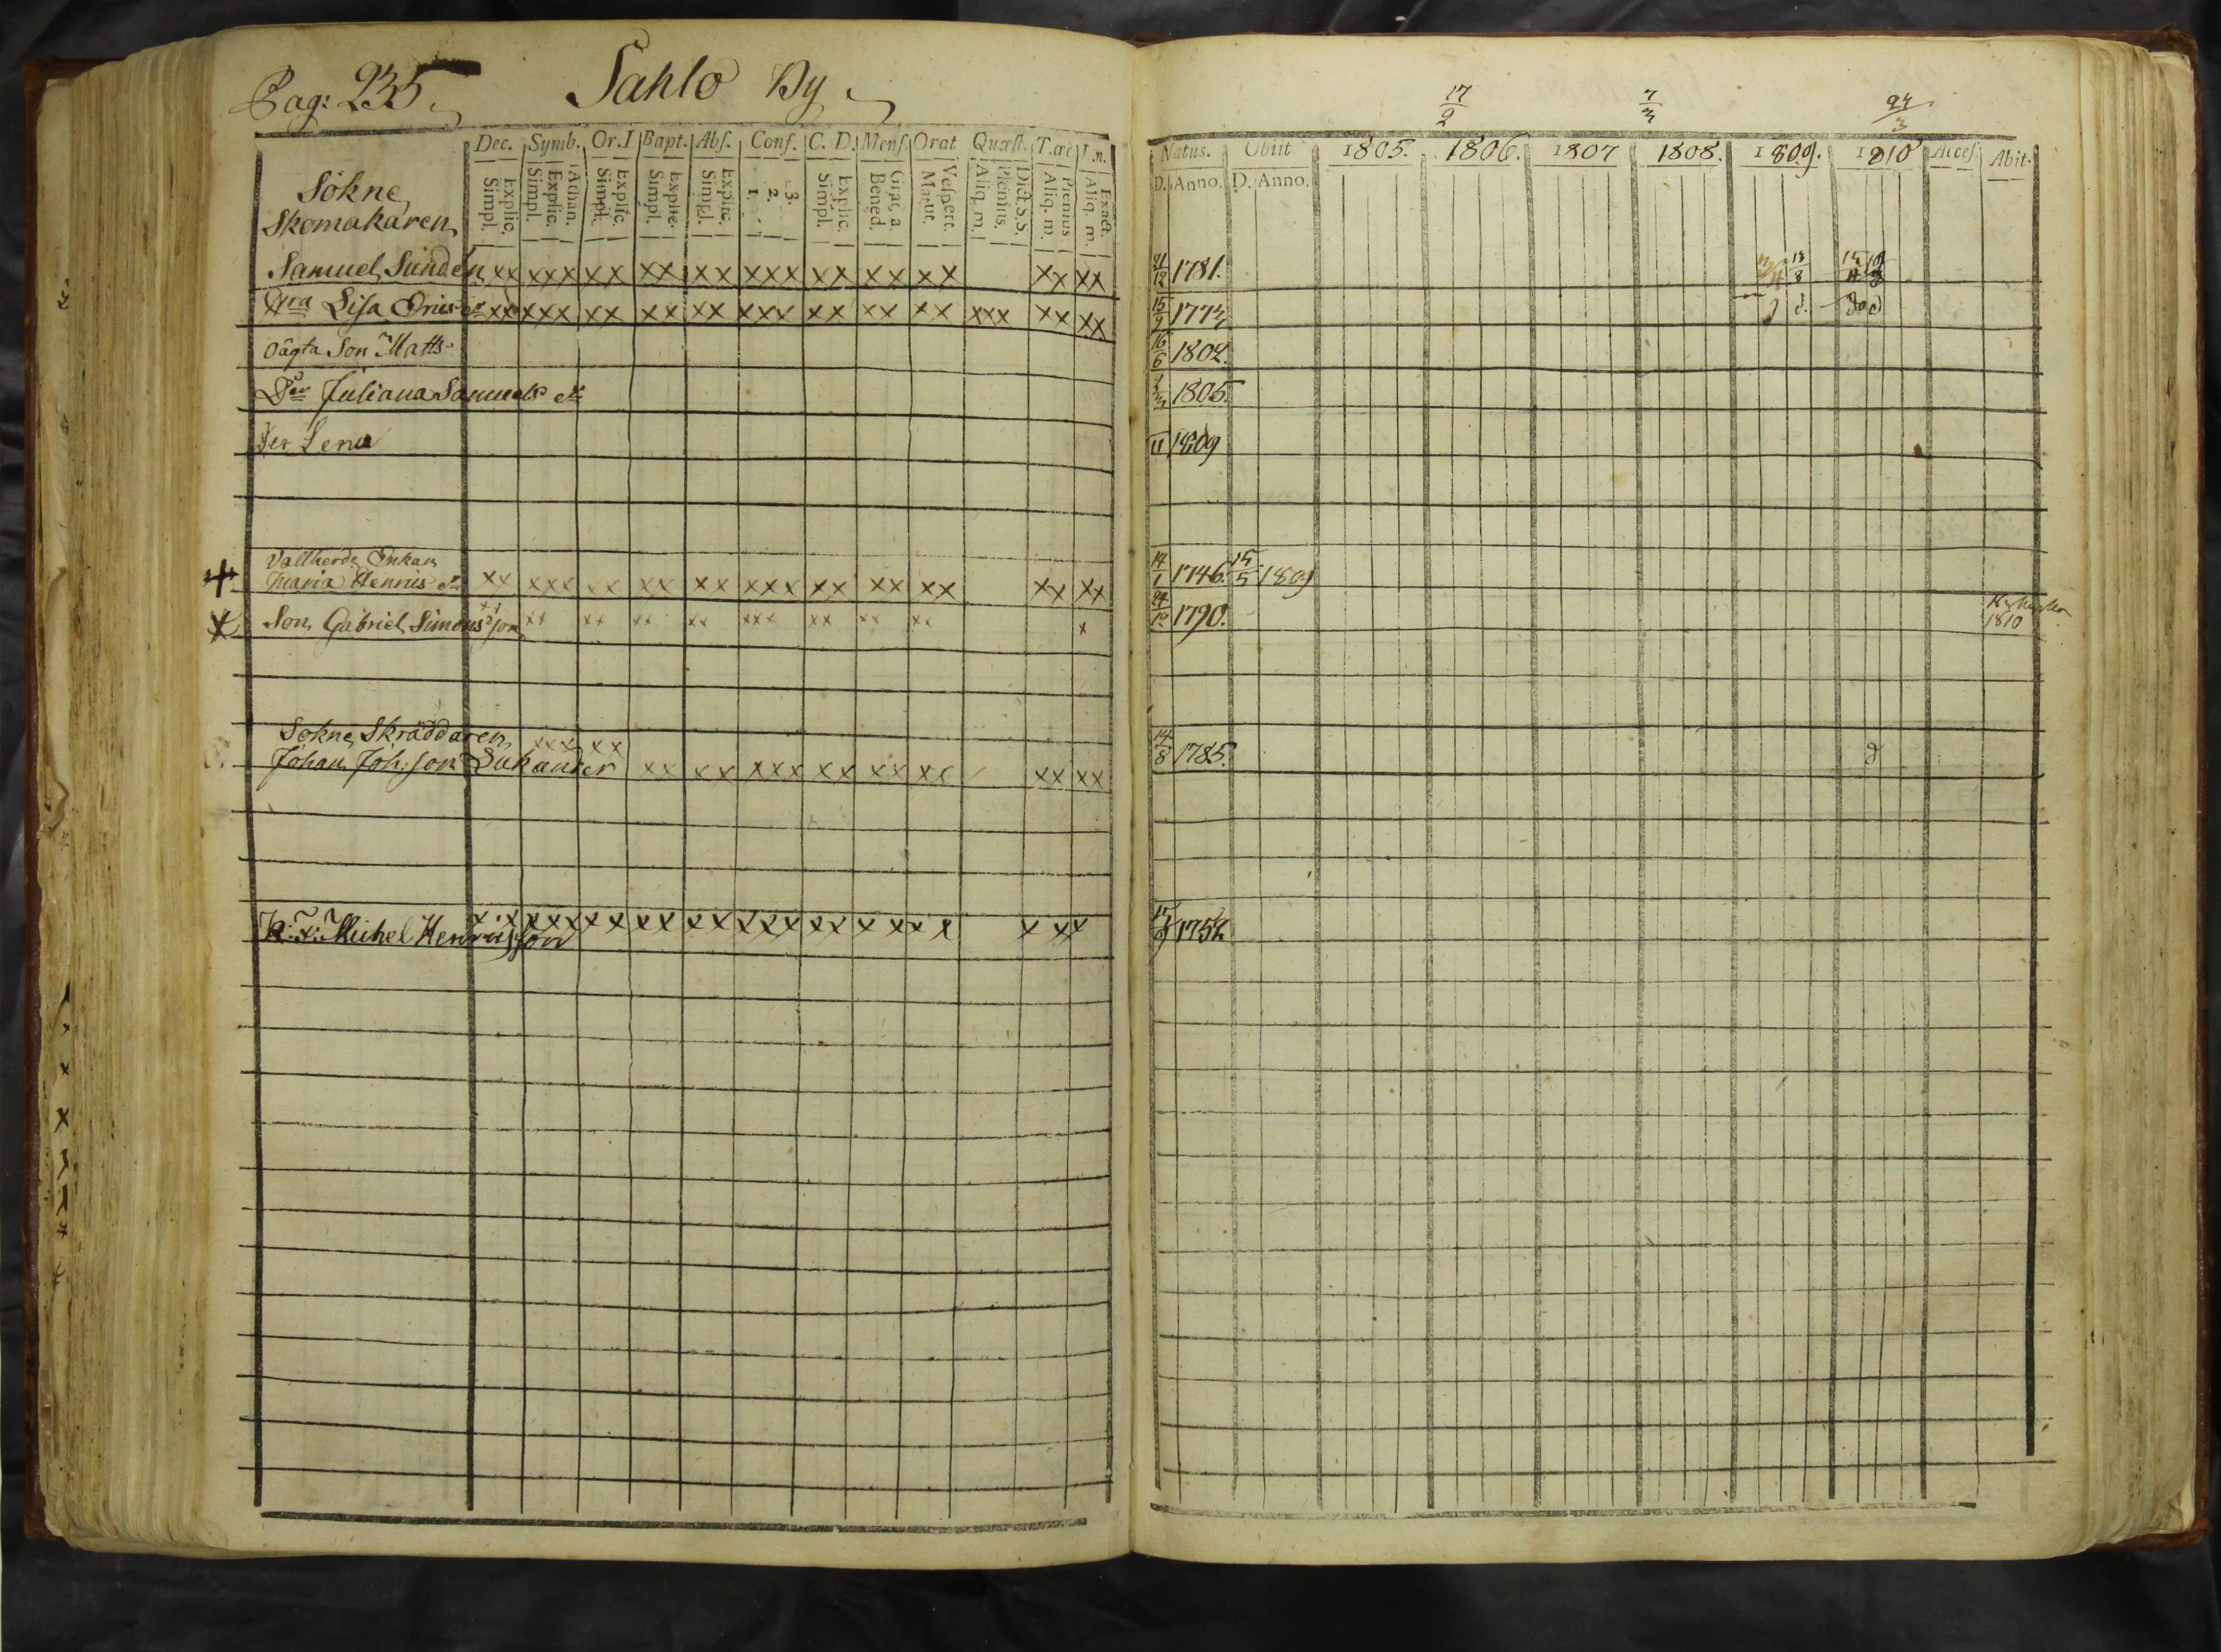 Pag: 235. Sahlo By
Dec. Symb. Or.D Bapt. Abs. Conf. C. D. Mens. Orat Quæst. T.œc L.n.
Explic. Simpl. Athan. Explic. Simpl. Explic. Simpl. Explic. Simpl. Explic. Simpl. 3. 2. 1. Explic. Simpl. Grat. a. Bened. Vespert. Matut. Dict. S.S. Plenius. Aliq. m. Plenius Aliq. m. Exact. Aliq. m.
17/2 7/3 24/3
Natus. Obiit 1805. 1806. 1807 1808. 1809. 1810 Acces. Abit.
D. Anno. D. Anno.
Sokne
Skomakaren
Samuel Sundén xx xxx xx xx xx xxx xx xx xx xx xx 21/12 1781. 13/8
Lisa xx xxx xx xx xx xxx xx xx xx xxx xx xx 1773
oägta Son Matts 16/6 1802.
Der Juliana Samuels dr 1805.
Der Lena 11 1809
Vallherde Enkan
Maria Henrics dr xx xxx xx xx xx xxx xx xx xx xx xx 14/1 1746. 15/5 1809
Son Gabriel Simons son xx xx xx xx xx xxx xx xx xx x 1790. 1810
Sokne Skräddaren xxx xx
Johan Joh: son xx xx xxx xx xx xx xx xx 14/8 1785.
Michel Henricsson xx xxx xx xx xx xxx xx x xx x x xx 1752